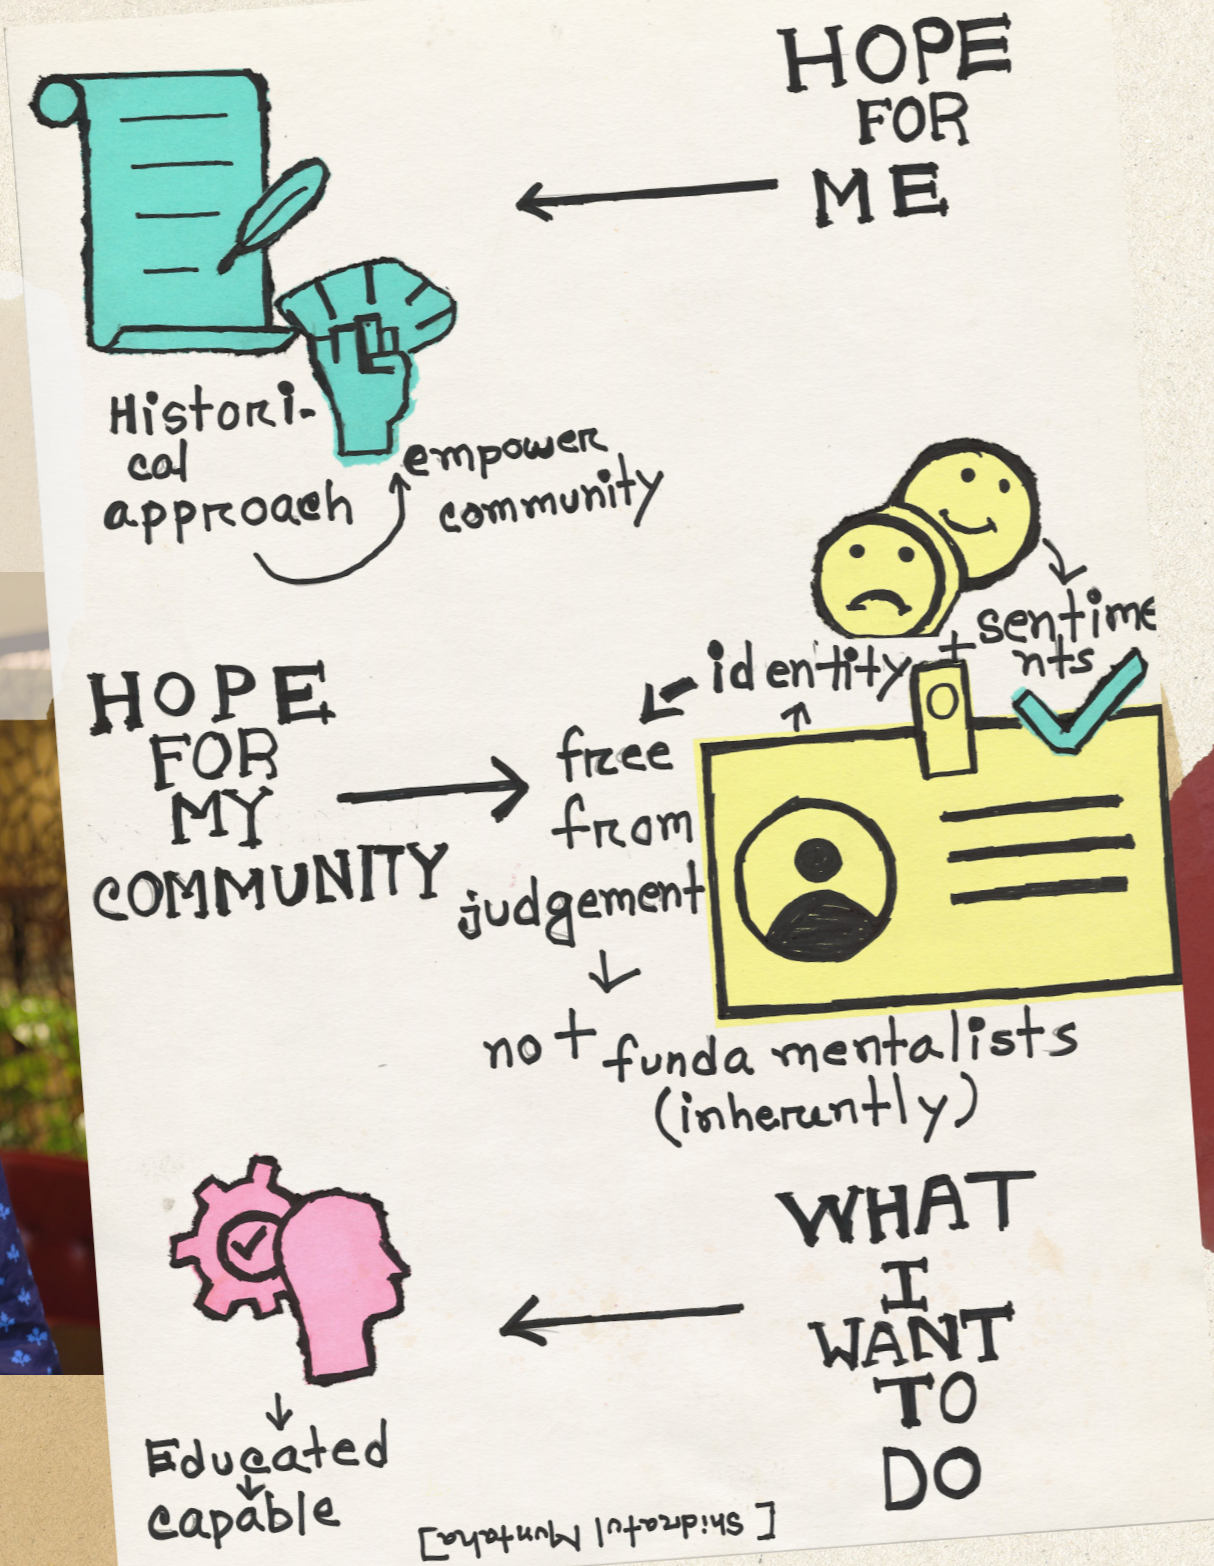 HOPE
FOR
ME
Histori-
cal
approach
empower
community
sentime
nts
identity +
free
from
judgement
HOPE
FOR
MY
COMMUNITY
not fundamentalists
(inherently)
WHAT
I
WANT
TO
DO
Educated
capable
[Shidratul Muntaha]